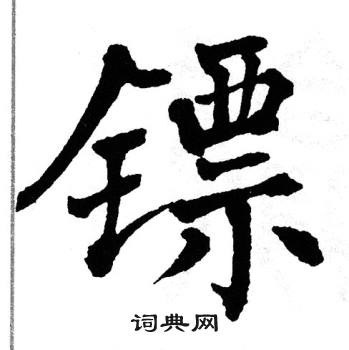 镖
词典网